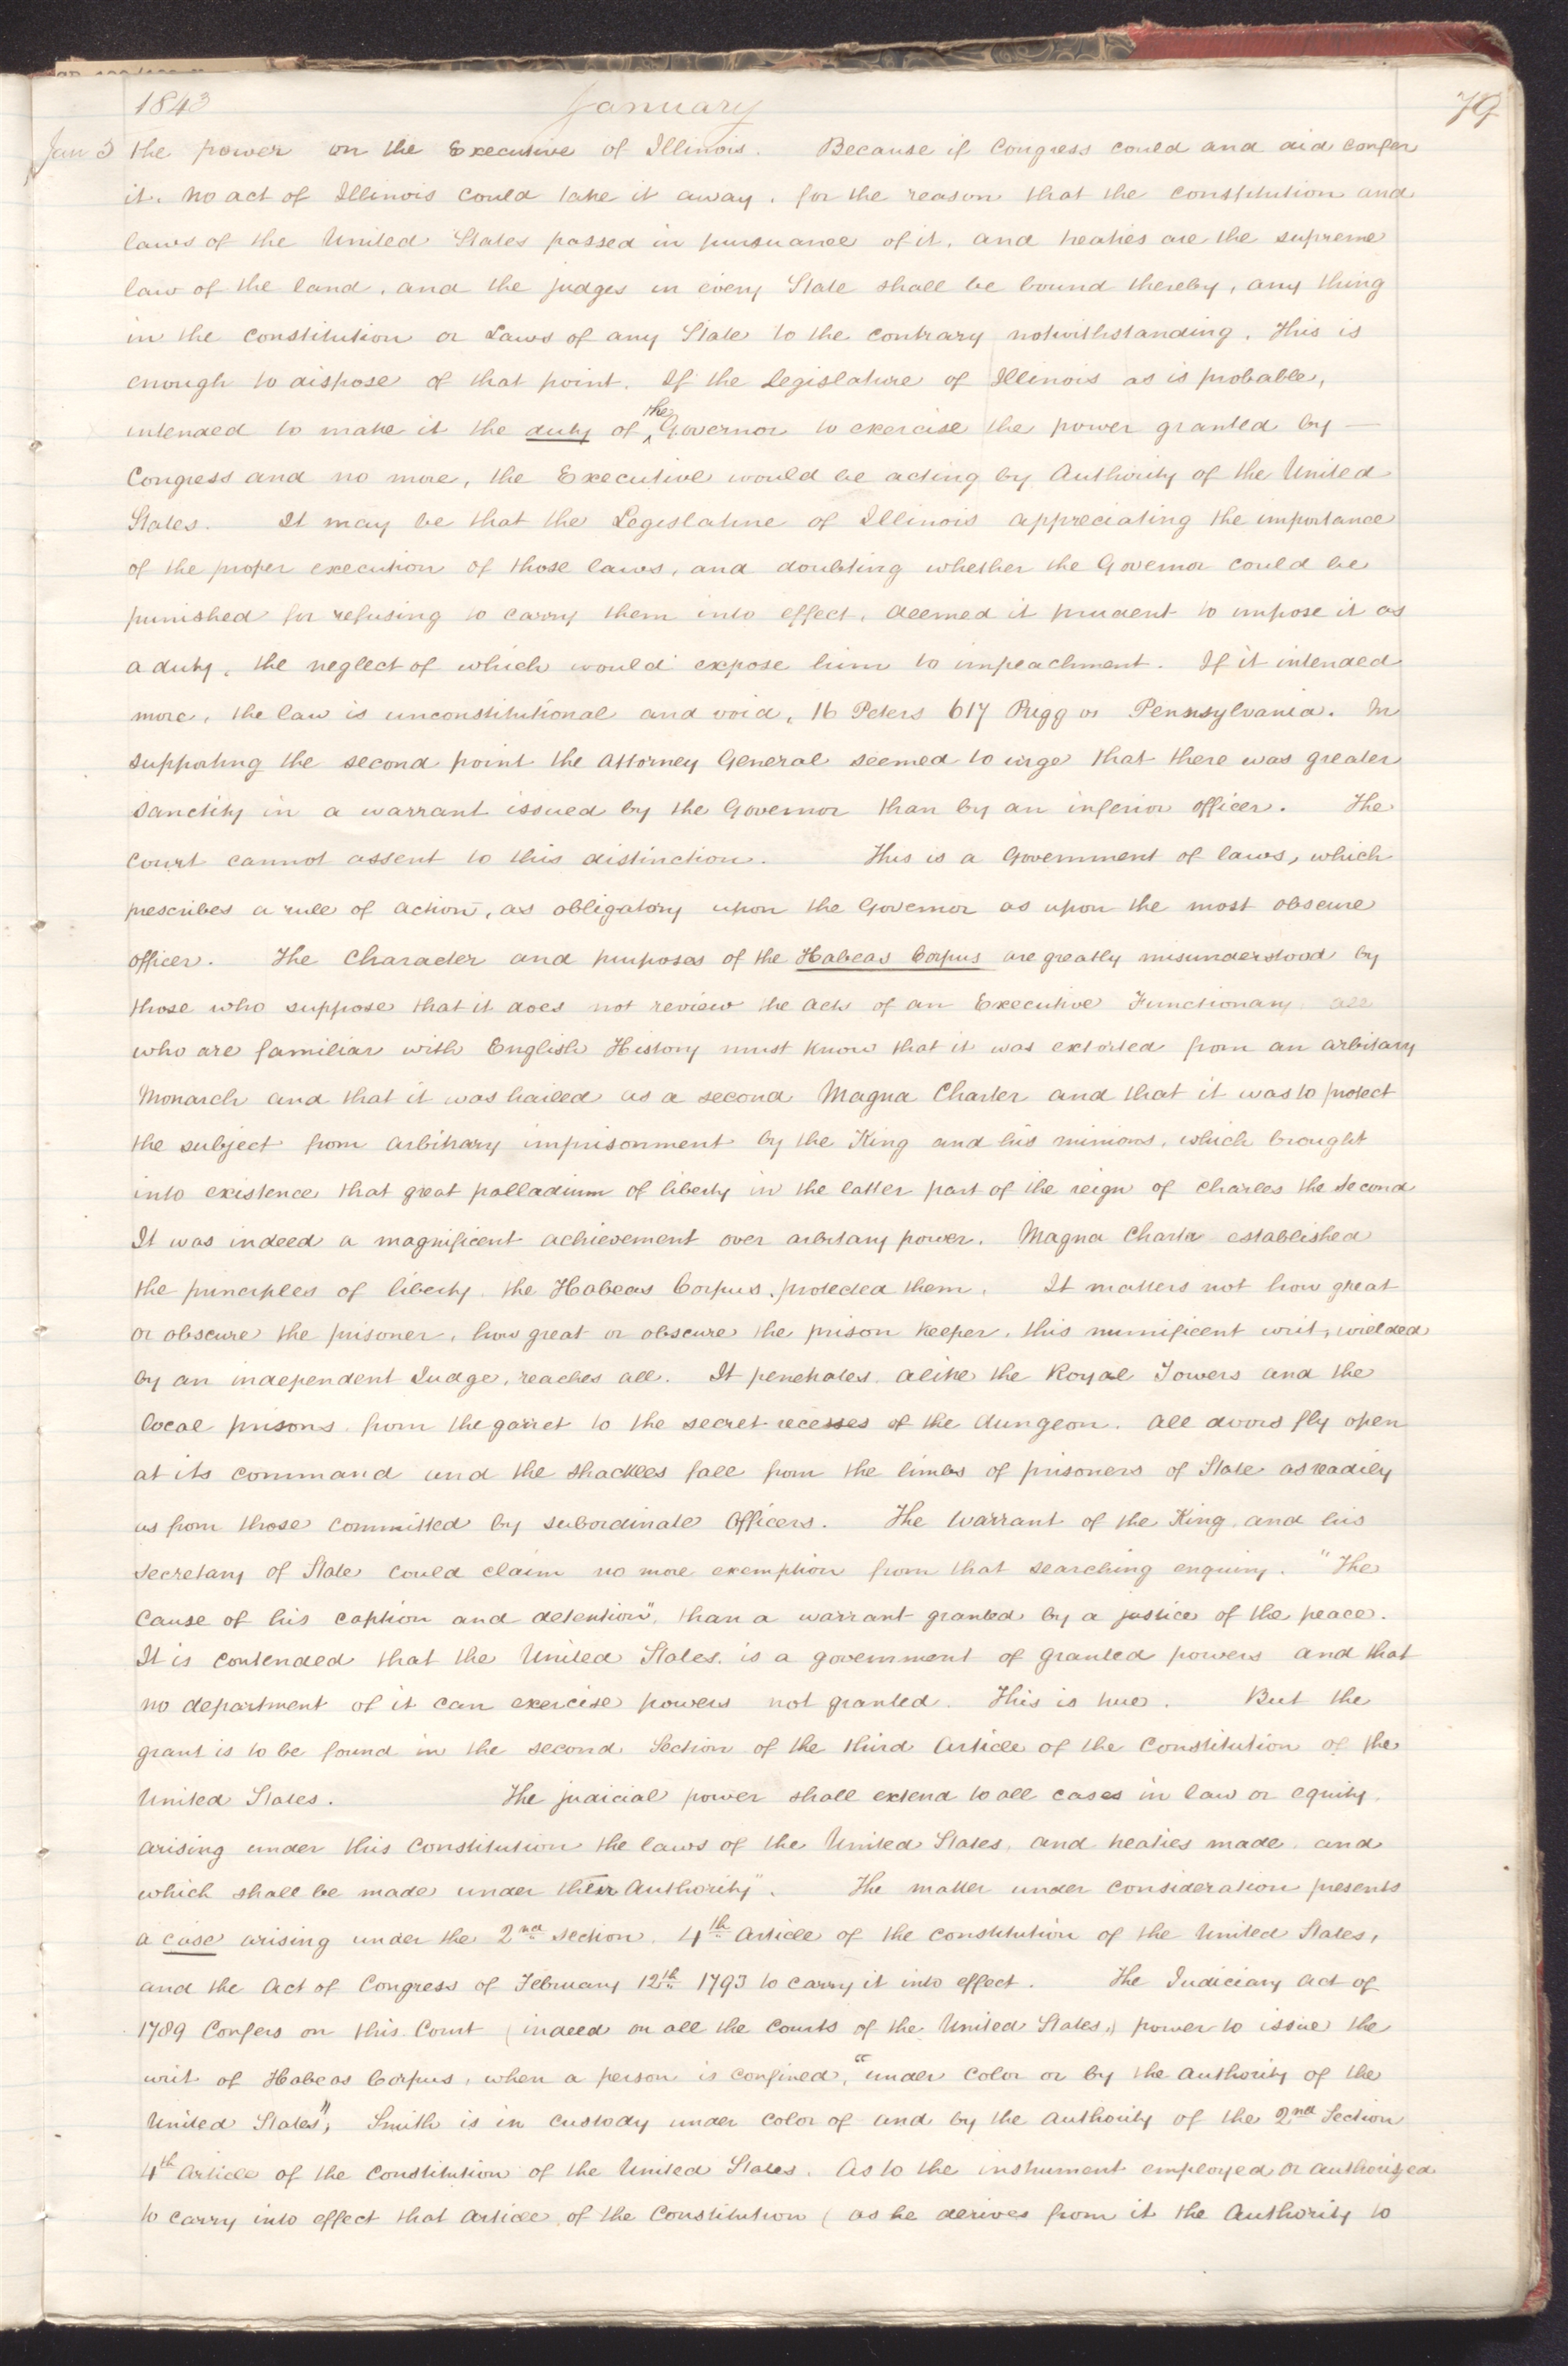 1843 January 79
Jan 3 the power on the Executive of Illinois. Because if Congress could and did confer
it. no act of Illinois could take it away, for the reason that the constitution and
laws of the United States passed in pursuance of it, and treaties are the supreme
law of the land, and the judges in every State shall be bound thereby, any thing
in the constitution or Laws of any State to the contrary notwithstanding. This is
enough to dispose of that point. If the Legislature of Illinois as is probable,
intended to make it the duty of the Governor to exercise the power granted by —
Congress and no more, the Executive would be acting by Authority of the United
States. It may be that the Legislature of Illinois appreciating the importance
of the proper execution of those laws, and doubting whether the Governor could be
punished for refusing to carry them into effect, deemed it prudent to impose it as
a duty, the neglect of which would expose him to impeachment. If it intended
more, the law is unconstitutional and void, 16 Peters 617 Prigg vs Pennsylvania. In
supporting the second point the Attorney General seemed to urge that there was greater
sanctity in a warrant issued by the Governor than by an inferior officer. The
court cannot assent to this distinction. This is a Government of laws, which
prescribes a rule of action, as obligatory upon the Governor as upon the most obscure
officer. The Character and purposes of the Habeas Corpus are greatly misunderstood by
those who suppose that it does not review the acts of an Executive Functionary. all
who are familiar with English History must know that it was extorted from an arbitary
Monarch and that it was hailed as a second Magna Charter and that it was to protect
the subject from arbitrary imprisonment by the King and his minions, which brought
into existence that great palladium of liberty in the latter part of the reign of Charles the Second
It was indeed a magnificent achievement over arbitary power. Magna Charta established
the principles of liberty, the Habeas Corpus, protected them. It matters not how great
or obscure the prisoner, how great or obscure the prison keeper, this munificent writ, wielded
by an independent Judge, reaches all. It penetrates alike the Royal Towers and the
local prisons, from the garret to the secret recesses of the dungeon. All doors fly open
at its command and the shackles fall from the limbs of prisoners of State as readily
as from those committed by subordinate Officers. The Warrant of the King and his
Secretary of State could claim no more exemption from that searching enquiry. "The
Cause of his caption and detention", than a warrant granted by a justice of the peace.
It is contended that the United States. is a government of granted powers and that
no department of it can exercise powers not granted. This is true. But the
grant is to be found in the second Section of the third Article of the Constitution of the
United States. The judicial power shall extend to all cases in law or equity,
arising under this Constitution the laws of the United States, and treaties made, and
which shall be made under their Authority". The matter under consideration presents
a case arising under the 2nd section, 4th Article of the constitution of the United States,
and the Act of Congress of February 12th 1793 to carry it into effect. The Judiciary Act of
1789 Confers on this Court (indeed on all the Courts of the United States,) power to issue the
writ of Habeas Corpus, when a person is confined, "under Color or by the authority of the
United States", Smith is in custody under Color of and by the authority of the 2nd Section
4th Article of the Constitution of the United States. As to the instrument employed or authorized
to carry into effect that Article of the Constitution (as he derives from it the Authority to